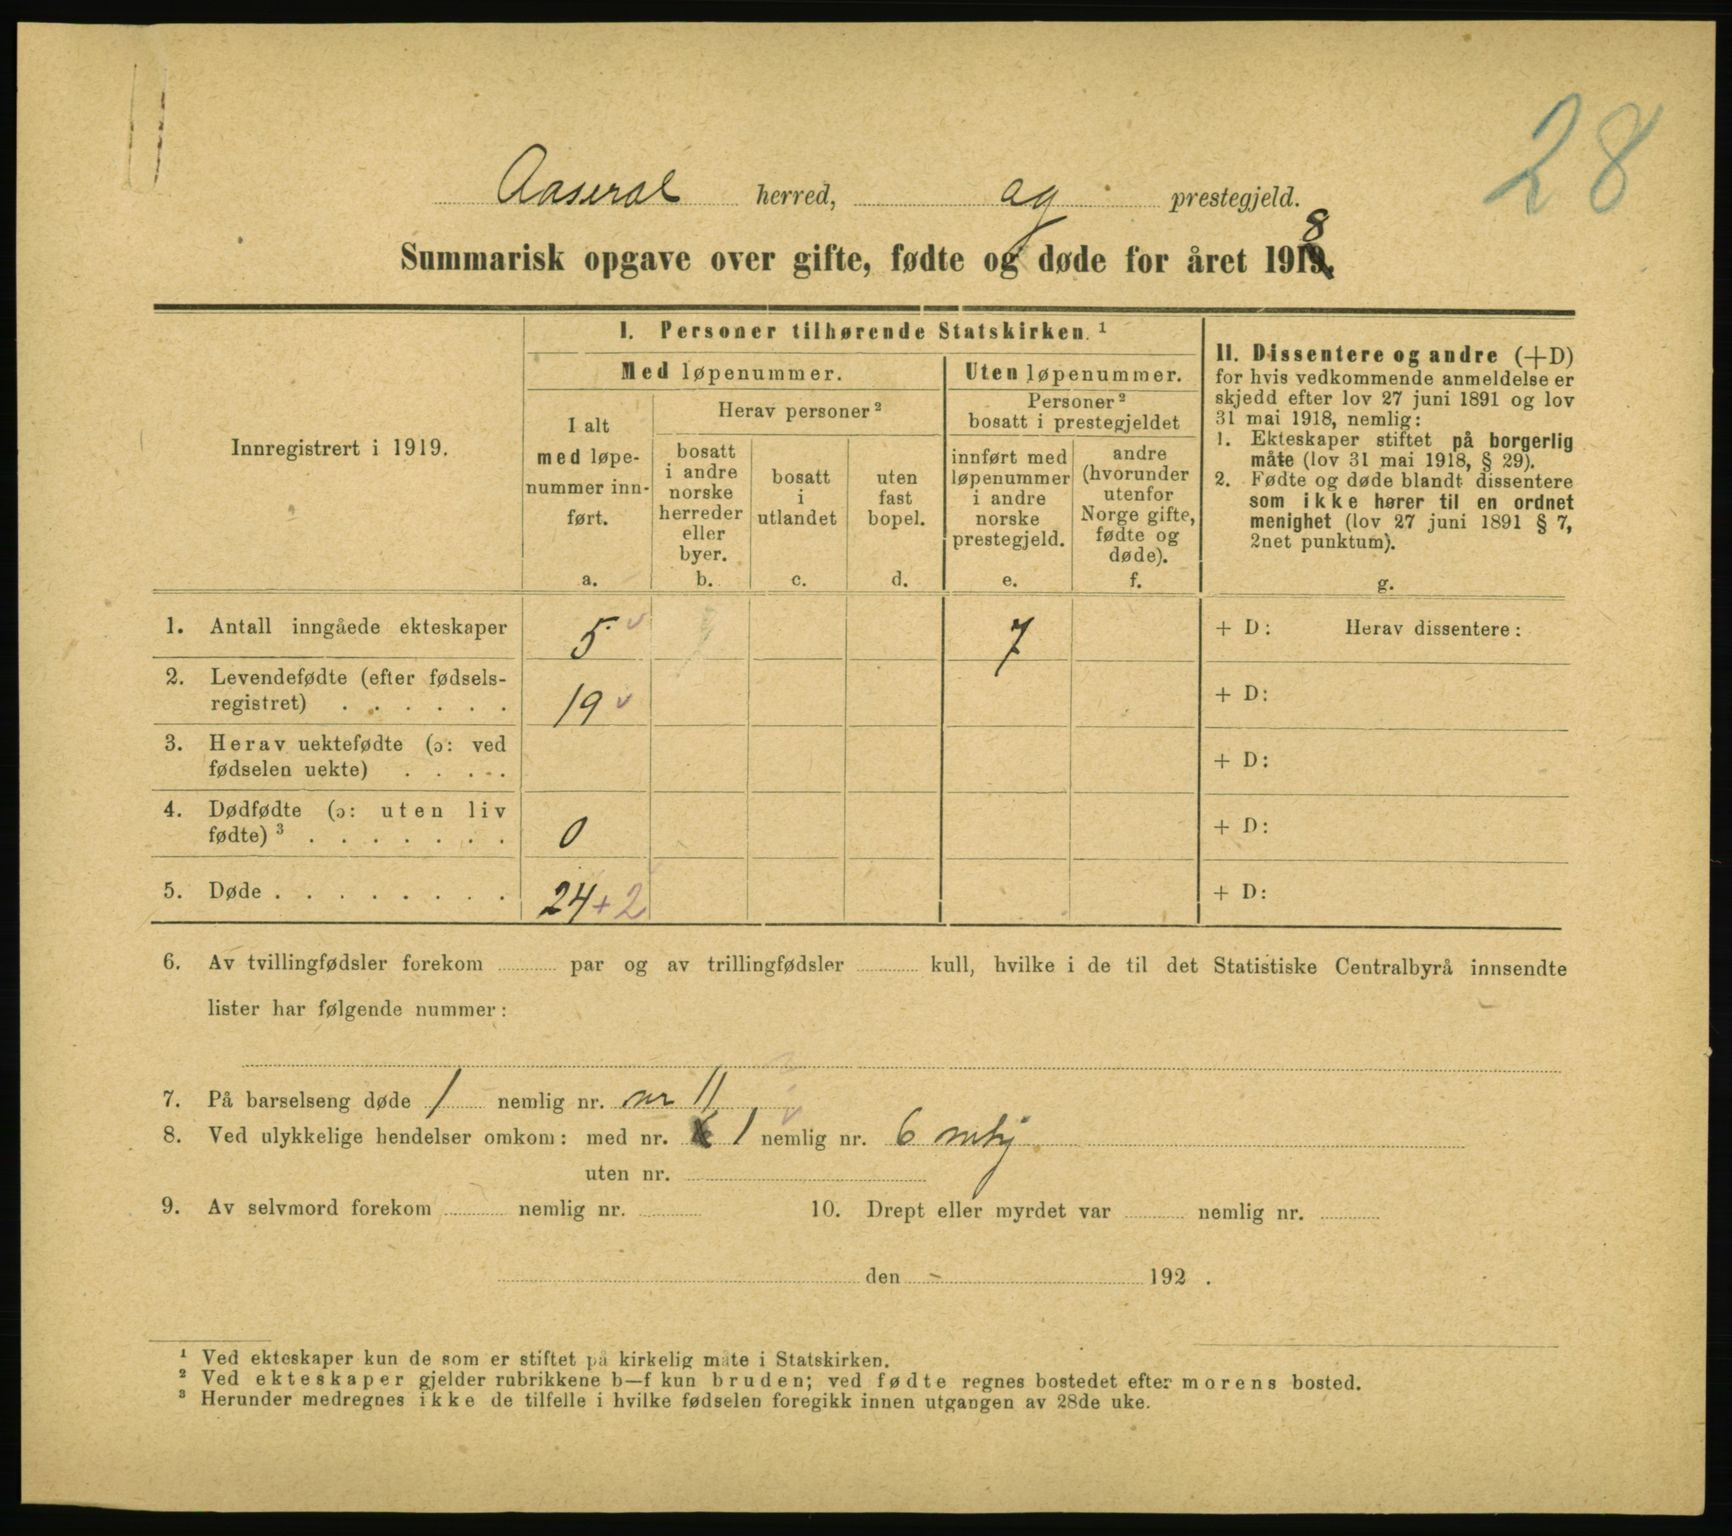 28
Aaseral herred, og prestegjeld.
Summarisk opgave over gifte, fødte og døde for året 1918.
I. Personer tilhørende Statskirken.¹
Med løpenummer.
Uten løpenummer.
II. Dissentere og andre (+D)
for hvis vedkommende anmeldelse er
skjedd efter lov 27 juni 1891 og lov
31 mai 1918, nemlig:
1. Ekteskaper stiftet på borgerlig
måte (lov 31 mai 1918, § 29).
2. Fødte og døde blandt dissentere
som ikke hører til en ordnet
menighet (lov 27 juni 1891 § 7,
2net punktum).
g.
Innregistrert i 1919.
I alt
med løpe-
nummer inn-
ført.
a.
Herav personer²
bosatt
i andre
norske
herreder
eller
byer.
b.
bosatt
i
utlandet
c.
uten
fast
bopel.
d.
Personer²
bosatt i prestegjeldet
innført med
løpenummer
i andre
norske
prestegjeld.
e.
andre
(hvorunder
utenfor
Norge gifte,
fødte og
døde).
f.
1. Antall inngåede ekteskaper 5 7 + D: Herav dissentere:
2. Levendefødte (efter fødsels-
registret) . . . . . . 19 + D:
3. Herav uektefødte (ɔ: ved
fødselen uekte) . . . . + D:
4. Dødfødte (ɔ: uten liv
fødte)³ . . . . . . . 0 + D:
5. Døde . . . . . . . . 24 + 2 + D:
6. Av tvillingfødsler forekom ........ par og av trillingfødsler ........ kull, hvilke i de til det Statistiske Centralbyrå innsendte
lister har følgende nummer:
7. På barselseng døde 1 nemlig nr. nr 11
8. Ved ulykkelige hendelser omkom: med nr. 1 nemlig nr. 6 mkj
uten nr.
9. Av selvmord forekom ........ nemlig nr. ........ 10. Drept eller myrdet var ........ nemlig nr. ........
den 192 .
¹ Ved ekteskaper kun de som er stiftet på kirkelig måte i Statskirken.
² Ved ekteskaper gjelder rubrikkene b—f kun bruden; ved fødte regnes bostedet efter morens bosted.
³ Herunder medregnes ikke de tilfelle i hvilke fødselen foregikk innen utgangen av 28de uke.